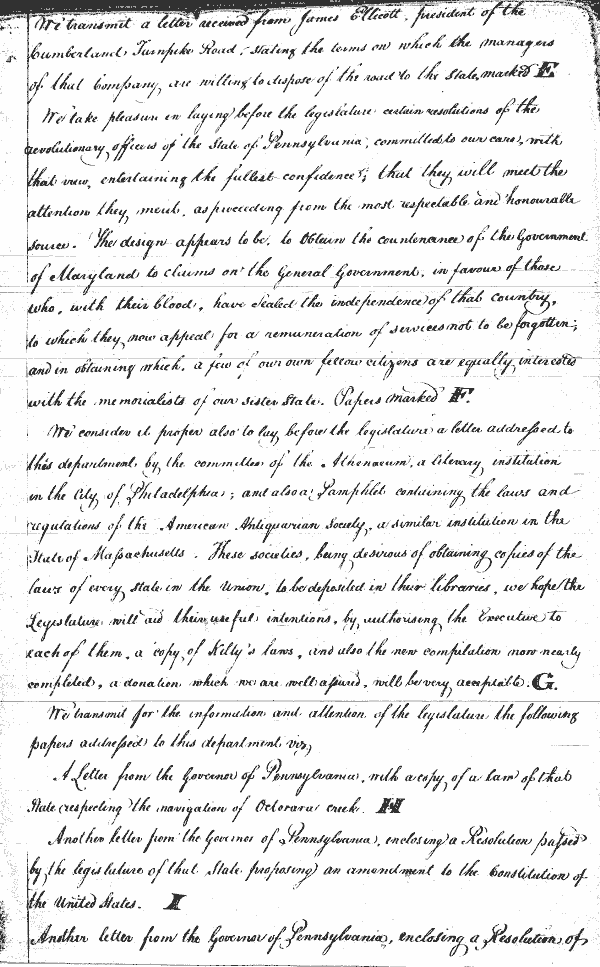 We transmit a letter received from James Ellicott, president of the
Cumberland Turnpike Road, stating the terms on which the managers
of that Company, are willing to dispose of the road to the State, marked E.
We take pleasure in laying before the legislature certain resolutions of the
revolutionary officers of the State of Pennsylvania, committed to our care, with
that view, entertaining the fullest confidence, that they will meet the
attention they merit, as proceeding from the most respectable and honourable
source. The design appears to be, to obtain the countenance of the Government
of Maryland to claims on the General Government, in favour of those
who, with their blood, have sealed the independence of that country,
to which they now appeal for a remuneration of services not to be forgotten;
and in obtaining which, a few of our own fellow citizens are equally interested
with the memorialists of our sister State. Papers marked F.
We consider it proper also to lay before the legislature a letter addressed to
this department by the committee of the Athenaeum, a literary institution
in the City of Philadelphia; and also a Pamphlet containing the laws and
regulations of the American Antiquarian Society, a similar institution in the
State of Massachusetts. These societies, being desirous of obtaining copies of the
laws of every State in the Union, to be deposited in their libraries, we hope the
Legislature will aid their useful intentions, by authorising the Executive to
each of them, a copy of Kelty's laws, and also the new compilation now nearly
completed, a donation which we are well assured, will be very acceptable. G.
We transmit for the information and attention of the legislature the following
papers addressed to this department viz,
A Letter from the Governor of Pennsylvania, with a copy of a law of that
State respecting the navigation of Octorara creek. H
Another letter from the Governor of Pennsylvania, enclosing a Resolution passed
by the legislature of that State proposing an amendment to the Constitution of
the United States. I
Another letter from the Governor of Pennsylvania, enclosing a Resolution of